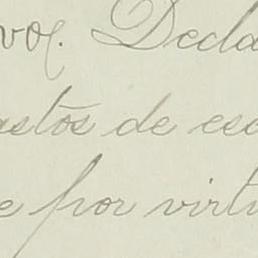 vos. Decla
astos de esc
e por virtu